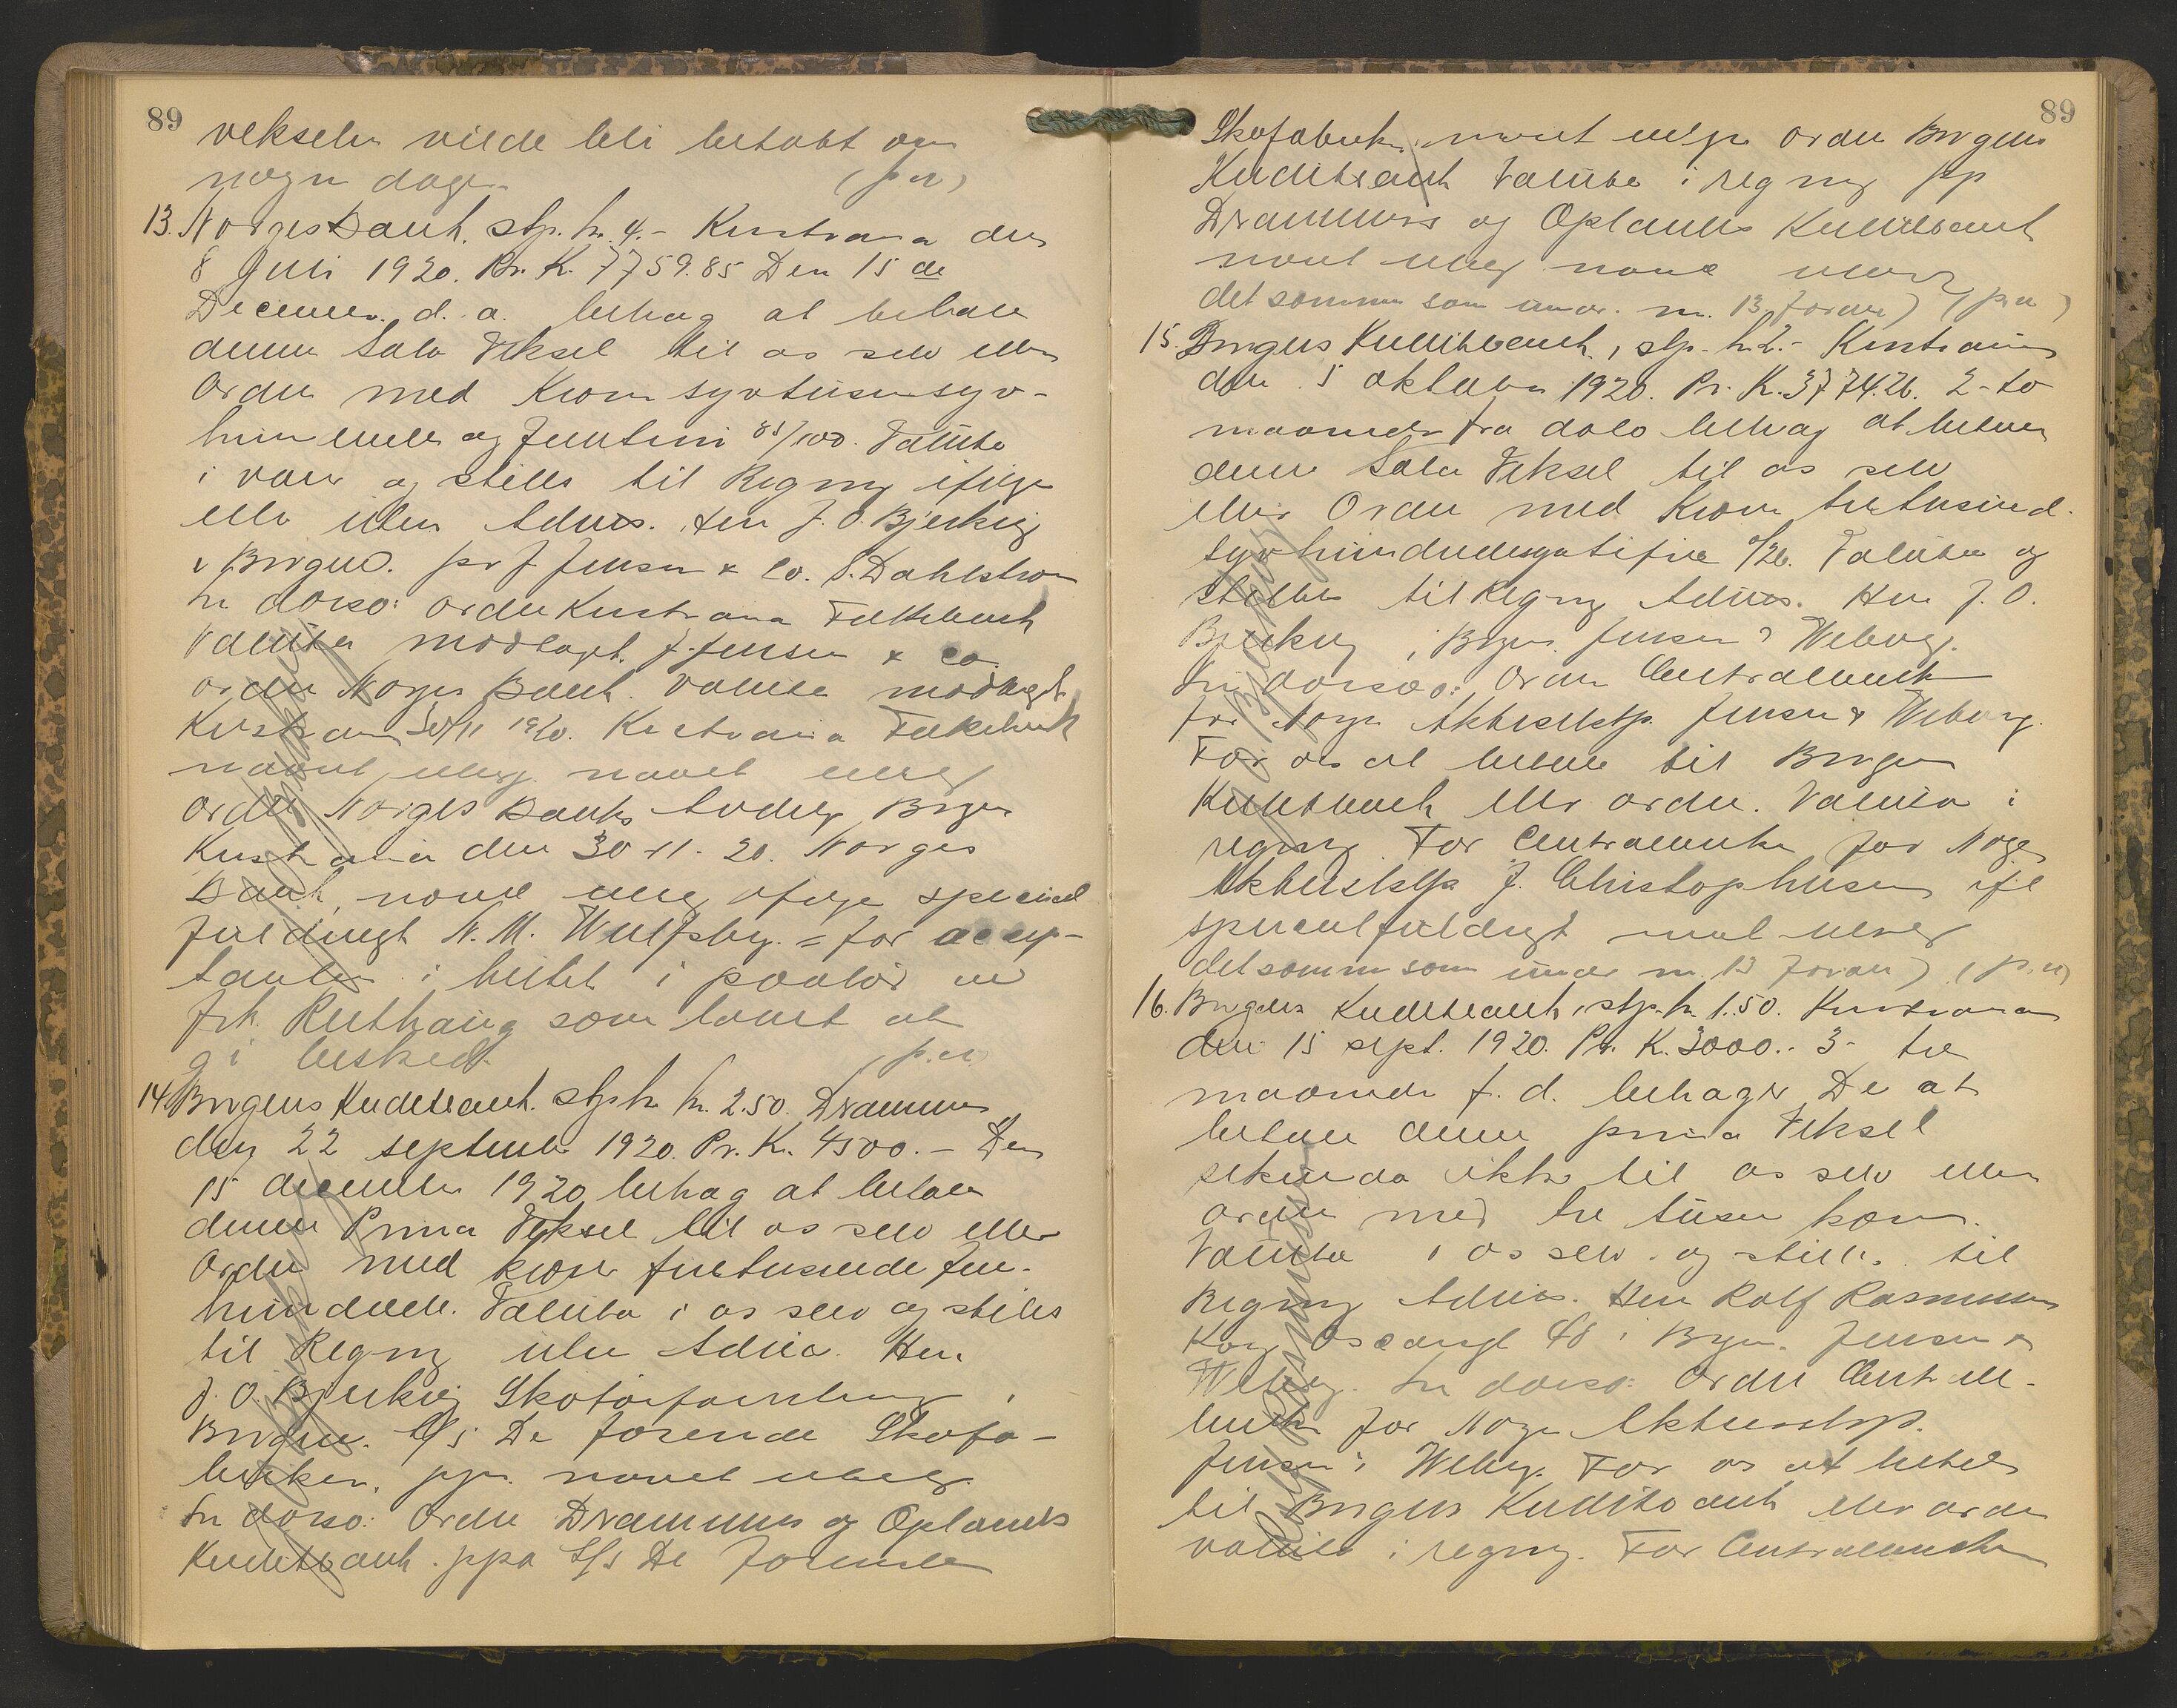 89
vekselen vilde bli betalt om
nogen dage. (p.u)
13. Norges Bank. stp. kr. 4.- Kristiania den
8 Juli 1920. Pr. K. 7759.85 Den 15 de
December d. a. behag at betale
denne Sola Veksel til os selv eller
Ordre med Kroner syvtusensyv-
hundrede og femtini 85/100. Valuta
i varer og stilles til Regning ifølge
eller uten Advis. Herr J. O. Bjerkvig
i Bergen. J. Jensen & Co. S. Dahlstrøm
In dorso: ordre Kristiania Folkebank
Valuta modtaget. J. Jensen & Co.
ordre Norges Bank. Valuta modtaget
Kristiania 30/11 1920. Kristiania Folkebank
navnet ulæs. navnet ulæs
ordre Norges Banks Avdeling Bergen
Kristiania den 30-11-20. Norges
Bank, navnet ulæs ifølge speciel
fuldmagt N. M. Wulfsberg. = for accep-
tanten i huset i paatør ved
frk. Reuthaug som lovet at
gi besked. (p.u)
14. Bergens Kreditbank. stp. kr. 2.50. Drammen
den 22 september 1920. Pr. K. 4500.- Den
15 december 1920 behag at betale
denne Prima Veksel til os selv eller
Ordre med kroner firetusindefem-
hundrede. Valuta i os selv og stilles
til Regning uten Advis. Herr
J. O. Bjerkvig Skotøiforretning i
Bergen. A/S De forenede Skofa-
briker. ppa. navnet ulæs.
In dorso: Ordre Drammens og Oplands
Kreditbank. ppa A/S De Forenede
89
Skofabriker navnet ulæs. ordre Bergens
Kreditbank Valuta i regning pp
Drammens og Oplands Kreditbank
navnet ulæs navnet ulæs
det samme som under nr. 13 foran) (p.u)
15. Bergens Kreditbank, stp. kr. 2.- Kristiania
den 5 oktober 1920. Pr. K. 3774.26. 2-to
maaneder fra dato behag at betale
denne Sola Veksel til os selv
eller Ordre med Kroner tretusind-
syvhundredesyttifire /26. Valuta og
stilles til Regning Advis. Herr J. O.
Bjerkvig i Bergen. Jensen & Weberg.
In dorso: Ordre Centralbanken
for Norge Aktieselsk. Jensen & Weberg.
For os at betale til Bergens
Kreditbank eller ordre. Valuta i
regning. For Centralbanken for Norge
Aktieselsk J. Christophersen ifl
specialfuldmagt navnet ulæs
det samme som under nr. 13 foran) (p.u)
16. Bergens Kreditbank, stp. kr. 1.50. Kristiania
den 15 sept. 1920. Pr. K. 3000.- 3- tre
maaneder f. d. behager De at
betale denne prima Veksel
sekunda ikke til os selv eller
ordre med tre tusen kroner.
Valuta i os selv og stilles til
Regning Advis. Herr Rolf Rasmussen
Kong Oscarsgt 48 i Bergen. Jensen &
Weberg. In dorso: Ordre Central-
banken for Norge Aktieselsk.
Jensen & Weberg. For os at betale
til Bergens Kreditbank eller ordre
valuta i regning. For Centralbanken